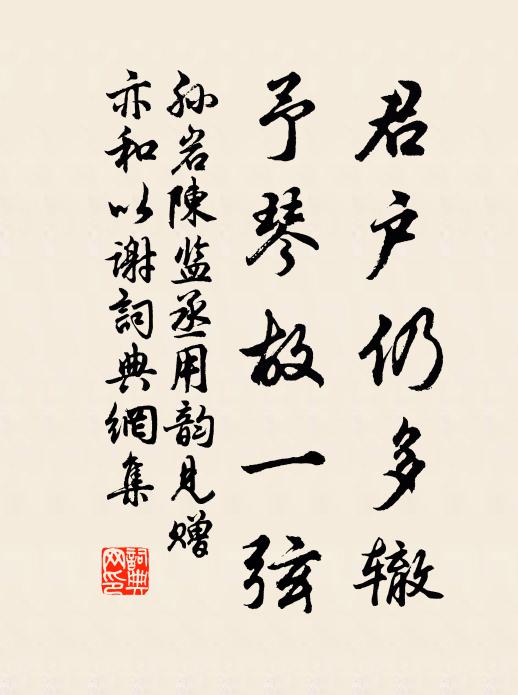 君户仍多辙
予琴故一弦
孙岩陳监丞用韵見赠
亦和以谢詞典網集
詞典网印